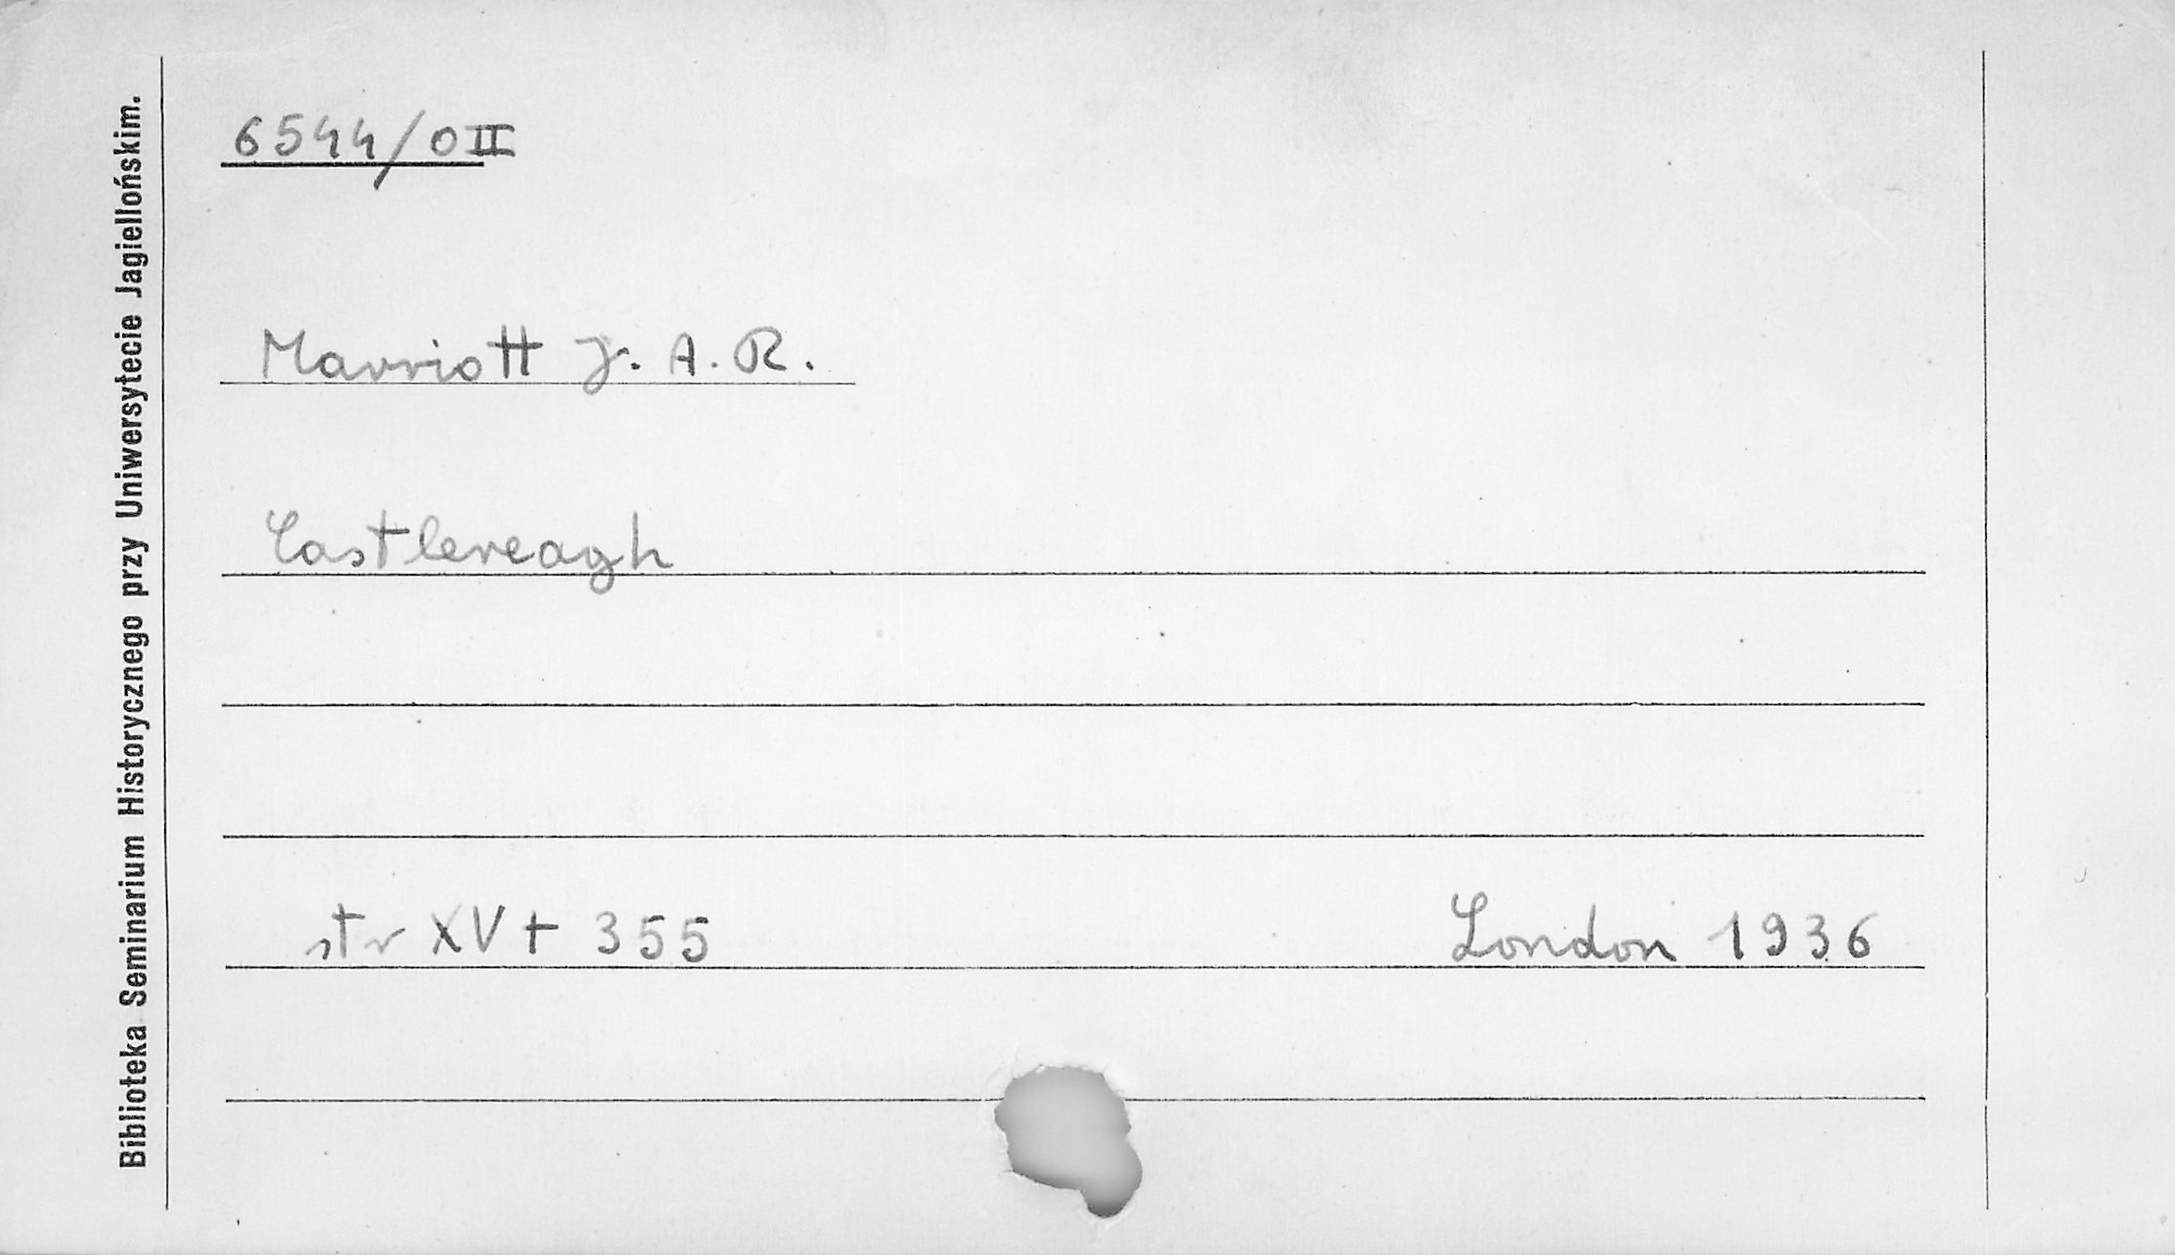 Biblioteka Seminarium Historycznego przy Uniwersytecie Jagiellońskim.
6544/0 II
Marriott J. A. R.
Castlereagh
str XV + 355 London 1936